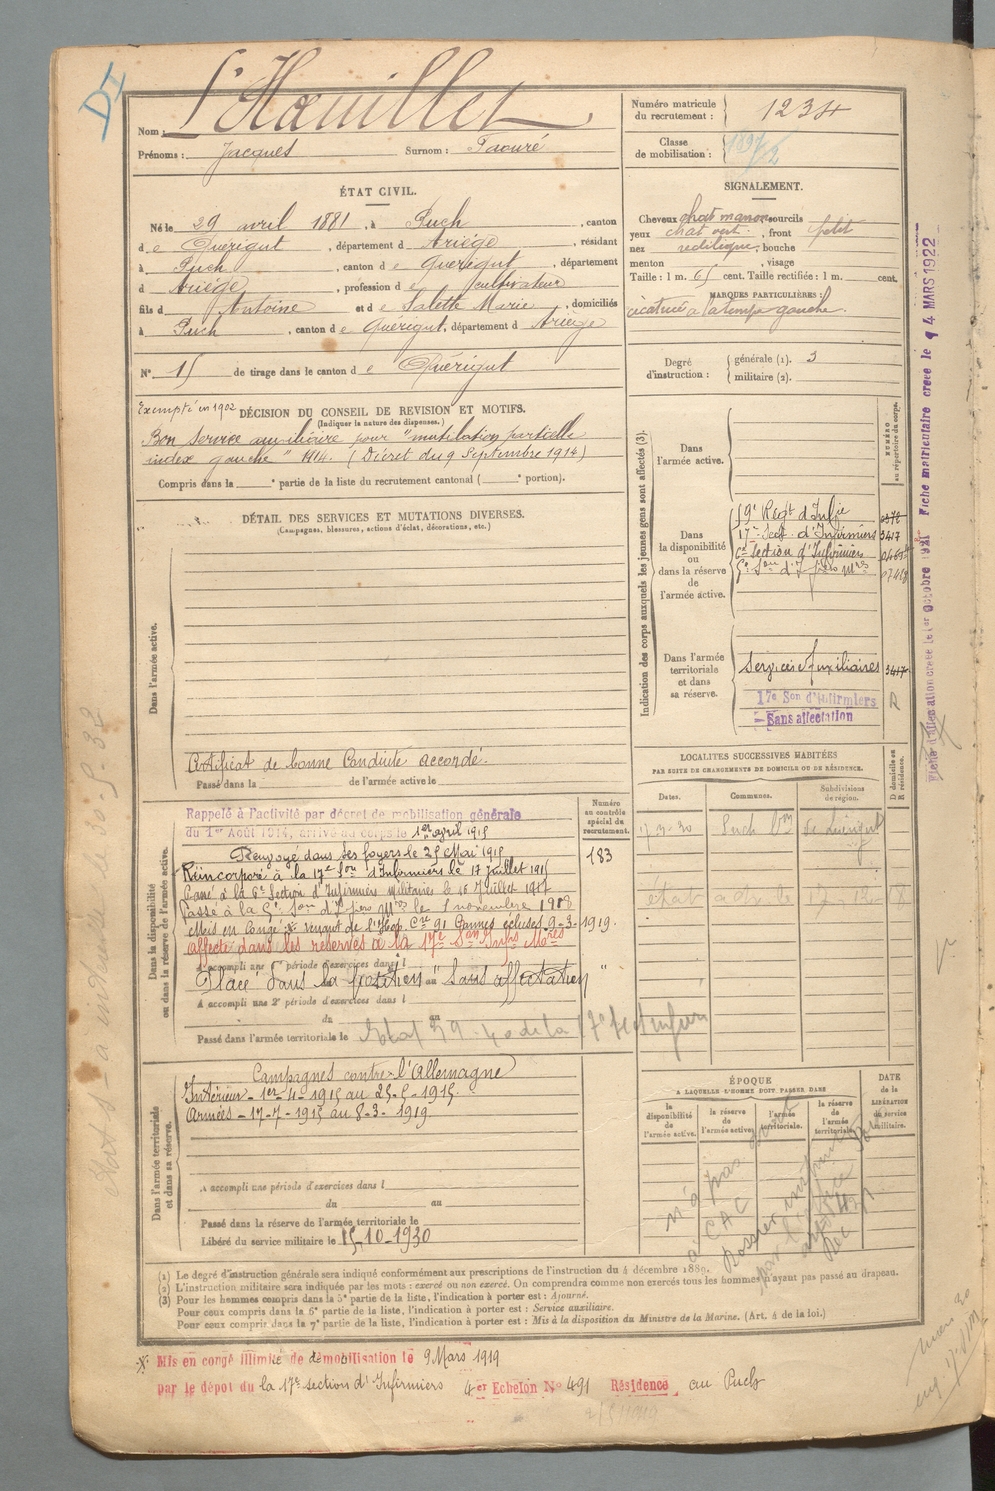 DI
Nom : L'Hœuillet
Prénoms : Jacques Surnom : Taouré
Numéro matricule du recrutement : 1234
Classe de mobilisation : 1897/2
ÉTAT CIVIL.
Né le 29 avril 1881, à Puch, canton
de Quérigut, département d Ariège, résidant
à Puch, canton de Quérigut, département
d Ariège, profession de cultivateur
fils d Antoine et de Salette Marie, domiciliés
à Puch, canton de Quérigut, département d Ariège
N° 15 de tirage dans le canton de Quérigut
SIGNALEMENT.
Cheveux chat marron sourcils
yeux chat vert, front petit
nez rectiligne, bouche
menton , visage
Taille : 1 m. 65 cent. Taille rectifiée : 1 m. cent.
MARQUES PARTICULIÈRES :
cicatrice à la tempe gauche.
Degré d'instruction : générale (1). 3
militaire (2).
Exempté en 1902 DÉCISION DU CONSEIL DE REVISION ET MOTIFS.
(Indiquer la nature des dispenses.)
Bon service auxiliaire pour "mutilation partielle
index gauche" 1914. (Décret du 9 Septembre 1914)
Compris dans la e partie de la liste du recrutement cantonal ( e portion).
DÉTAIL DES SERVICES ET MUTATIONS DIVERSES.
(Campagnes, blessures, actions d'éclat, décorations, etc.)
Dans l'armée active.
Certificat de bonne Conduite accordé.
Passé dans la de l'armée active le
Indication des corps auxquels les jeunes gens sont affectés (3).
NUMÉRO au répertoire du corps.
Dans l'armée active.
Dans la disponibilité ou dans la réserve de l'armée active.
59e Régt d'Infie
17e Sect. d'Infirmiers 3417
6e Section d'Infirmiers
Dans l'armée territoriale et dans sa réserve.
Services Auxiliaires 3417
17e Son d'Infirmiers
Sans affectation
R
Fiche d'affectation créée le 1er octobre 1921 Fiche matriculaire créée le 4 MARS 1922
LOCALITÉS SUCCESSIVES HABITÉES
PAR SUITE DE CHANGEMENTS DE DOMICILE OU DE RÉSIDENCE.
D domicile ou R résidence.
Dates. Communes. Subdivisions de région.
Puch
Dans la disponibilité ou dans la réserve de l'armée active.
Numéro au contrôle spécial du recrutement.
183
Rappelé à l'activité par décret de mobilisation générale
du 1er Août 1914, arrivé au corps le 1er avril 1915
Renvoyé dans ses foyers le 25 Mai 1915
Réincorporé à la 17e Son d'Infirmiers le 17 Juillet 1915
Passé à la 6e Section d'Infirmiers Militaires le 16 Juillet 1917
Passé à la 5e Son d'Infiers Mres le 1 novembre 1918
Mis en Congé venant de l'Hop. Cre 91 9-3-1919.
affecté dans les réserves à la 17e Son Infirs Mres
A accompli une 1re période d'exercices dans l
Placé dans la position "Sans affectation"
A accompli une 2e période d'exercices dans l
du au
Passé dans l'armée territoriale le
Dans l'armée territoriale et dans sa réserve.
Campagnes contre l'Allemagne
Intérieur - 1er-4-1915 au 25-5-1915.
Armées - 17-7-1915 au 8-3-1919.
A accompli une période d'exercices dans l
du au
Passé dans la réserve de l'armée territoriale le
Libéré du service militaire le 15-10-1930
ÉPOQUE
A LAQUELLE L'HOMME DOIT PASSER DANS
la disponibilité de l'armée active.
la réserve de l'armée active.
l'armée territoriale.
la réserve de l'armée territoriale.
DATE de la LIBÉRATION du service militaire.
(1) Le degré d'instruction générale sera indiqué conformément aux prescriptions de l'instruction du 4 décembre 1889.
(2) L'instruction militaire sera indiquée par les mots : exercé ou non exercé. On comprendra comme non exercés tous les hommes n'ayant pas passé au drapeau.
(3) Pour les hommes compris dans la 5e partie de la liste, l'indication à porter est : Ajourné.
Pour ceux compris dans la 6e partie de la liste, l'indication à porter est : Service auxiliaire.
Pour ceux compris dans la 7e partie de la liste, l'indication à porter est : Mis à la disposition du Ministre de la Marine. (Art. 4 de la loi.)
Mis en congé illimité de démobilisation le 9 Mars 1919
par le dépôt du la 17e section d'Infirmiers 4er Echelon N° 491 Résidence au Puch